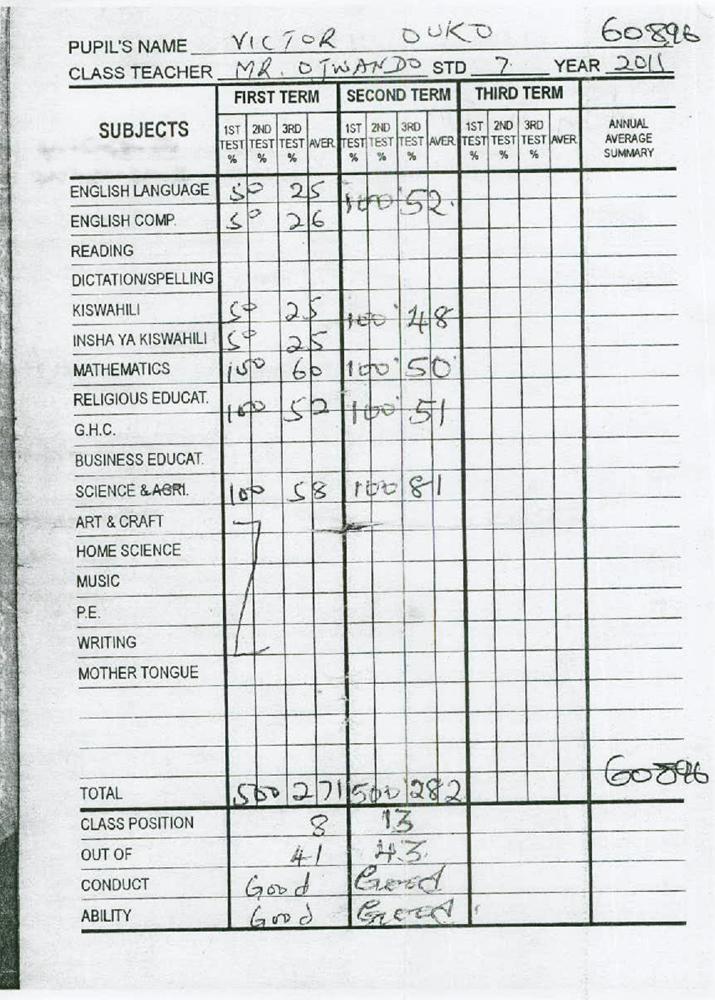 PUPIL'S NAME VICTOR OUKO 60896
CLASS TEACHER MR. OTWANDO STD 7. YEAR 2011
SUBJECTS FIRST TERM SECOND TERM THIRD TERM ANNUAL AVERAGE SUMMARY
1ST TEST % 2ND TEST % 3RD TEST % AVER. 1ST TEST % 2ND TEST % 3RD TEST % AVER. 1ST TEST % 2ND TEST % 3RD TEST % AVER.
ENGLISH LANGUAGE 50 25 100 52.
ENGLISH COMP. 50 26
READING
DICTATION/SPELLING
KISWAHILI 50 25 100 48
INSHA YA KISWAHILI 50 25
MATHEMATICS 100 60 100 50
RELIGIOUS EDUCAT. 100 52 100 51
G.H.C.
BUSINESS EDUCAT.
SCIENCE & AGRI. 100 58 100 81
ART & CRAFT
HOME SCIENCE
MUSIC
P.E.
WRITING
MOTHER TONGUE
60896
TOTAL 500 271 500 282
CLASS POSITION 8 13
OUT OF 41 43.
CONDUCT Good Good
ABILITY Good Good